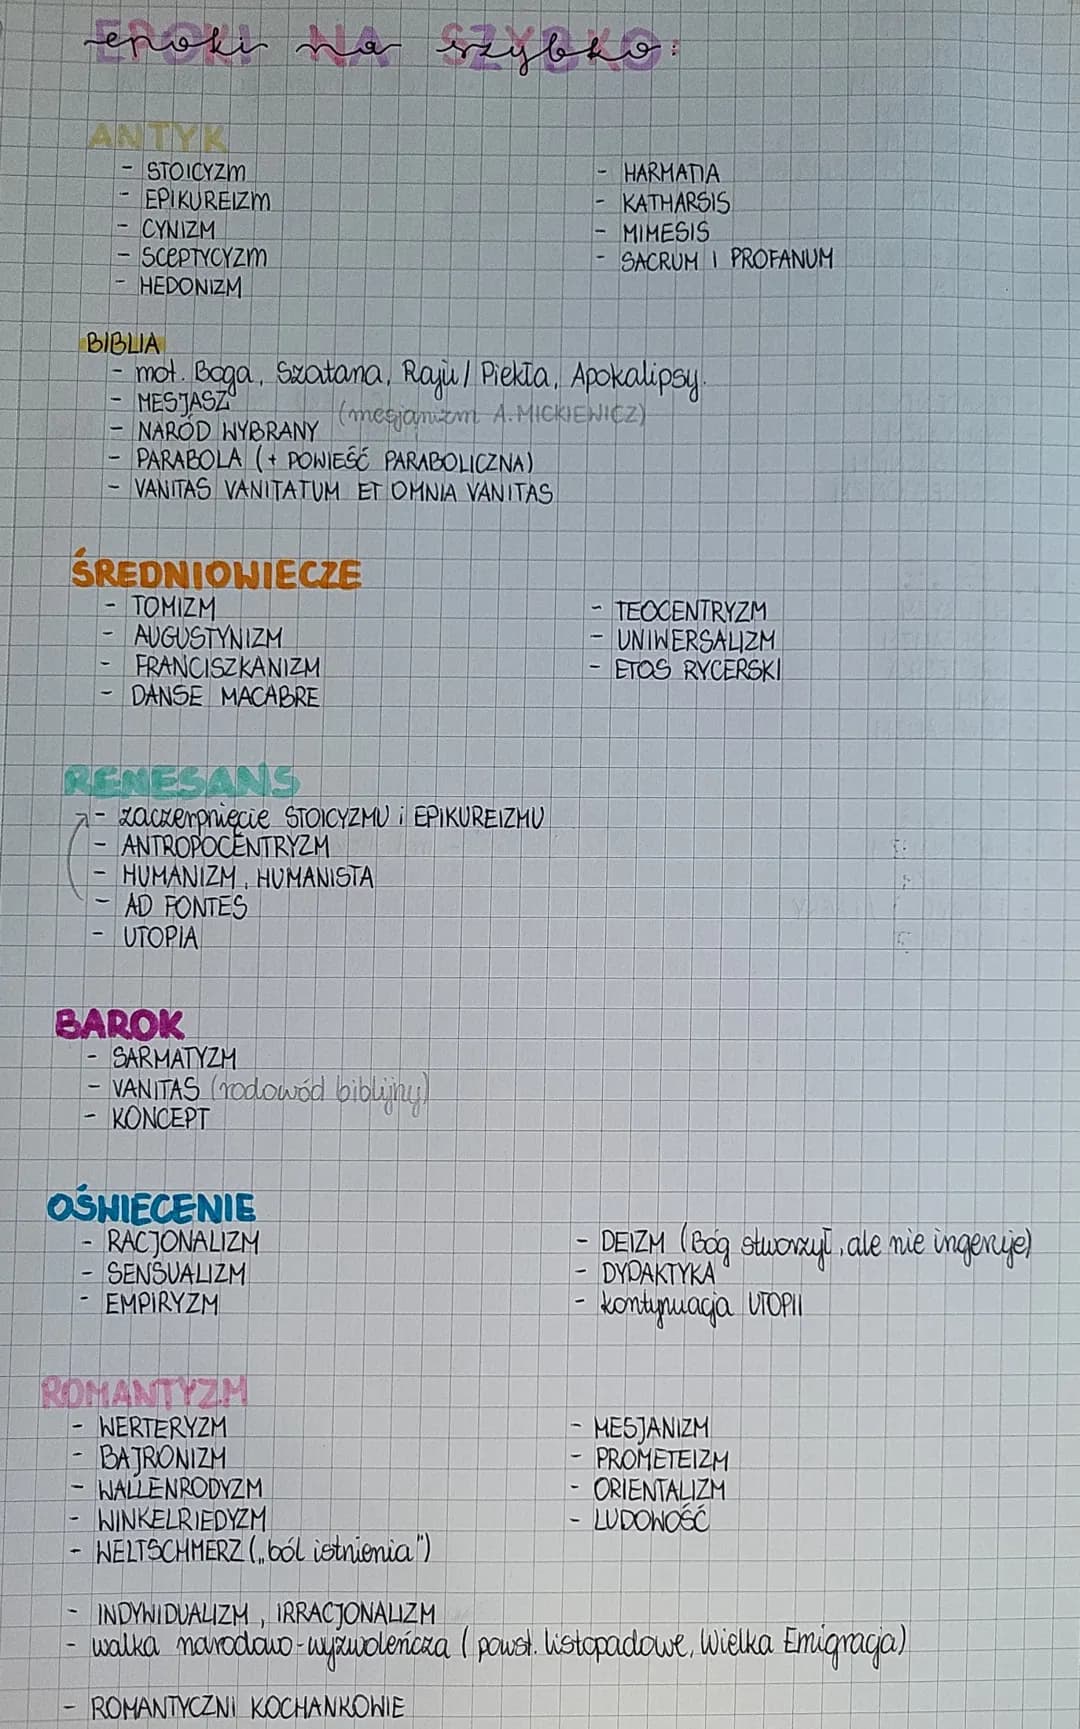 EPOKI NA SZYBKO:
ANTYK
- STOICYZM
- EPIKUREIZM
- CYNIZM
- SCEPTYCYZM
- HEDONIZM
- HARMATIA
- KATHARSIS
- MIMESIS
- SACRUM I PROFANUM
BIBLIA
- mot. Boga, Szatana, Raju / Piekła, Apokalipsy.
- MESJASZ
(mesjanizm A. MICKIEWICZ)
- NARÓD WYBRANY
- PARABOLA (+ POWIEŚĆ PARABOLICZNA)
- VANITAS VANITATUM ET OMNIA VANITAS
ŚREDNIOWIECZE
- TOMIZM
- AUGUSTYNIZM
- FRANCISZKANIZM
- DANSE MACABRE
- TEOCENTRYZM
- UNIWERSALIZM
- ETOS RYCERSKI
RENESANS
- zaczerpnięcie STOICYZMU i EPIKUREIZMU
- ANTROPOCENTRYZM
- HUMANIZM, HUMANISTA
- AD FONTES
- UTOPIA
BAROK
- SARMATYZM
- VANITAS (rodowód biblijny)
- KONCEPT
OŚWIECENIE
- RACJONALIZM
- SENSUALIZM
- EMPIRYZM
- DEIZM (Bóg stworzył, ale nie ingeruje)
- DYDAKTYKA
- kontynuacja UTOPII
ROMANTYZM
- WERTERYZM
- BAJRONIZM
- WALLENRODYZM
- WINKELRIEDYZM
- WELTSCHMERZ („ból istnienia")
- MESJANIZM
- PROMETEIZM
- ORIENTALIZM
- LUDOWOŚĆ
- INDYWIDUALIZM, IRRACJONALIZM
- walka narodowo-wyzwoleńcza (powst. listopadowe, Wielka Emigracja)
- ROMANTYCZNI KOCHANKOWIE